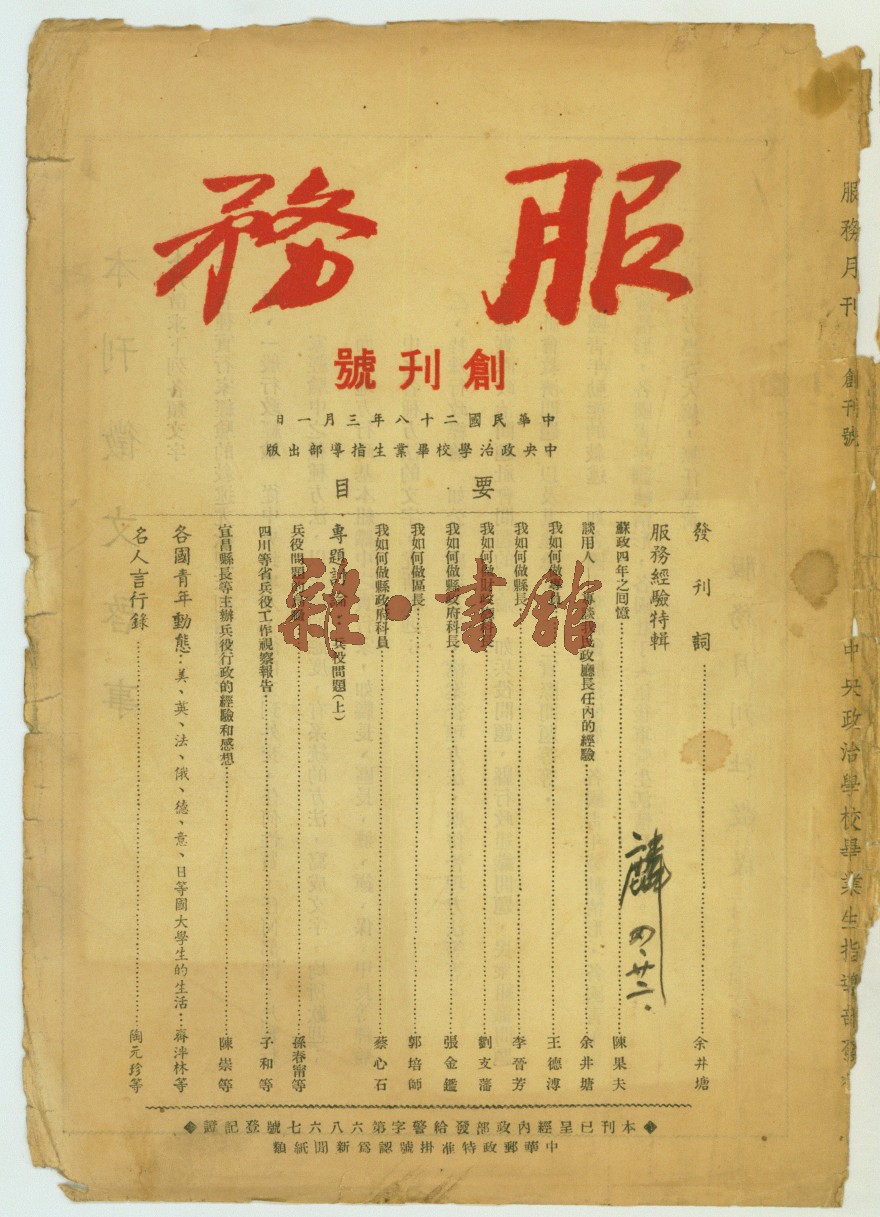 服務
創刊號
中華民國二十八年三月一日
中央政治學校畢業生指導部出版
要目
發刊詞……余井塘
服務經驗特輯
蘇政四年之回憶……陳果夫
談用人……民政廳長任內的經驗……余井塘
我如何做專員……王德溥
我如何做縣長……李晉芳
我如何做……長……劉支藩
我如何做縣政府科長……張金鑑
我如何做區長……郭培師
我如何做縣政府科員……蔡心石
專題討論：兵役問題(上)
兵役問題的……孫春甯等
四川等省兵役工作視察報告……子和等
宜昌縣長等主辦兵役行政的經驗和感想……陳崇等
各國青年動態：美、英、法、俄、德、意、日等國大學生的生活……蔣滓林等
名人言行錄……陶元珍等
四、廿二、
本刊已呈經內政部發給警字第六八六七號登記證
中華郵政特准掛號認為新聞紙類
服務月刊 創刊號
中央政治學校畢業生指導部發
雜·書館